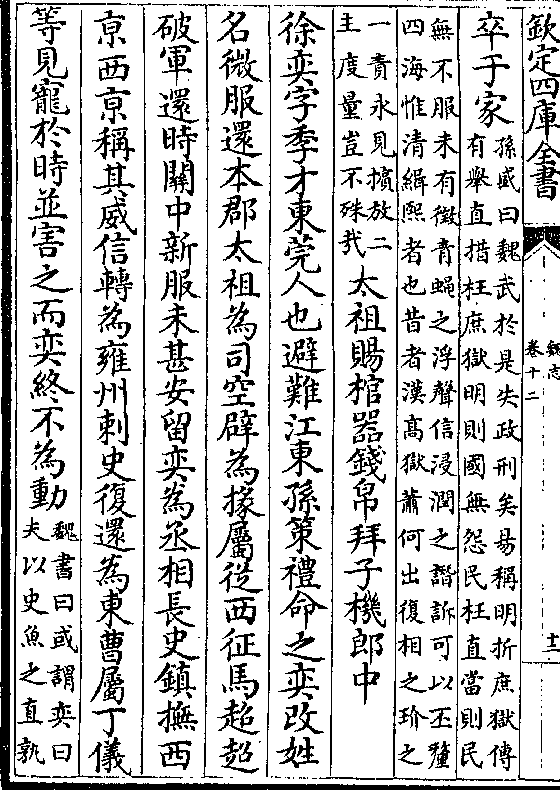 欽定四庫全書
魏志
卷十二
卒于家
孫盛曰魏武於是失政刑矣易稱明折庶獄傳
有舉直措枉庶獄明則國無怨民枉直當則民
無不服未有徵青蠅之浮聲信浸潤之譖訴可以丕釐
四海惟清緝熙者也昔者漢高獄蕭何出復相之玠之
一責永見擯放二
主度量豈不殊哉
太祖賜棺器錢帛拜子機郎中
徐奕字季才東莞人也避難江東孫策禮命之奕改姓
名微服還本郡太祖為司空辟為掾屬從西征馬超超
破軍還時關中新服未甚安留奕為丞相長史鎮撫西
京西京稱其威信轉為雍州刺史復還為東曹屬丁儀
等見寵於時並害之而奕終不為動
魏書曰或謂奕曰
夫以史魚之直孰